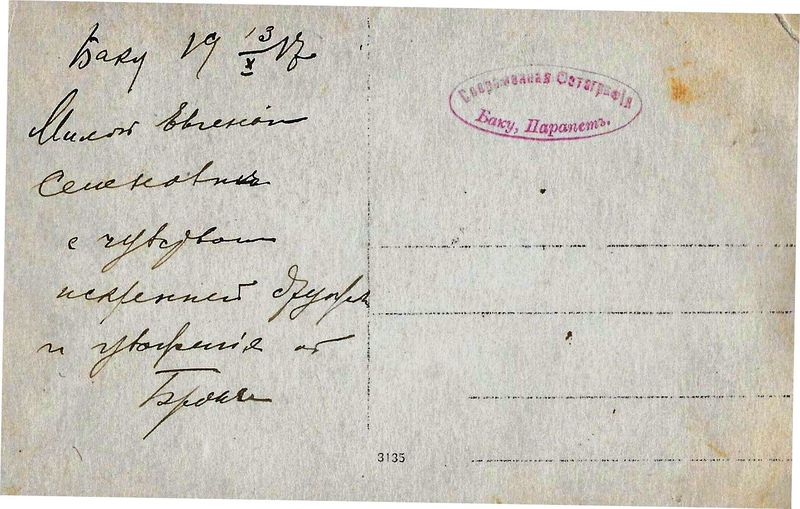 Баку 19 13/X 17
Милой Евгении
Семеновне
с чувством
искренней дружбы
и уважения от
Современная Фотографія
Баку, Парапетъ.
3135